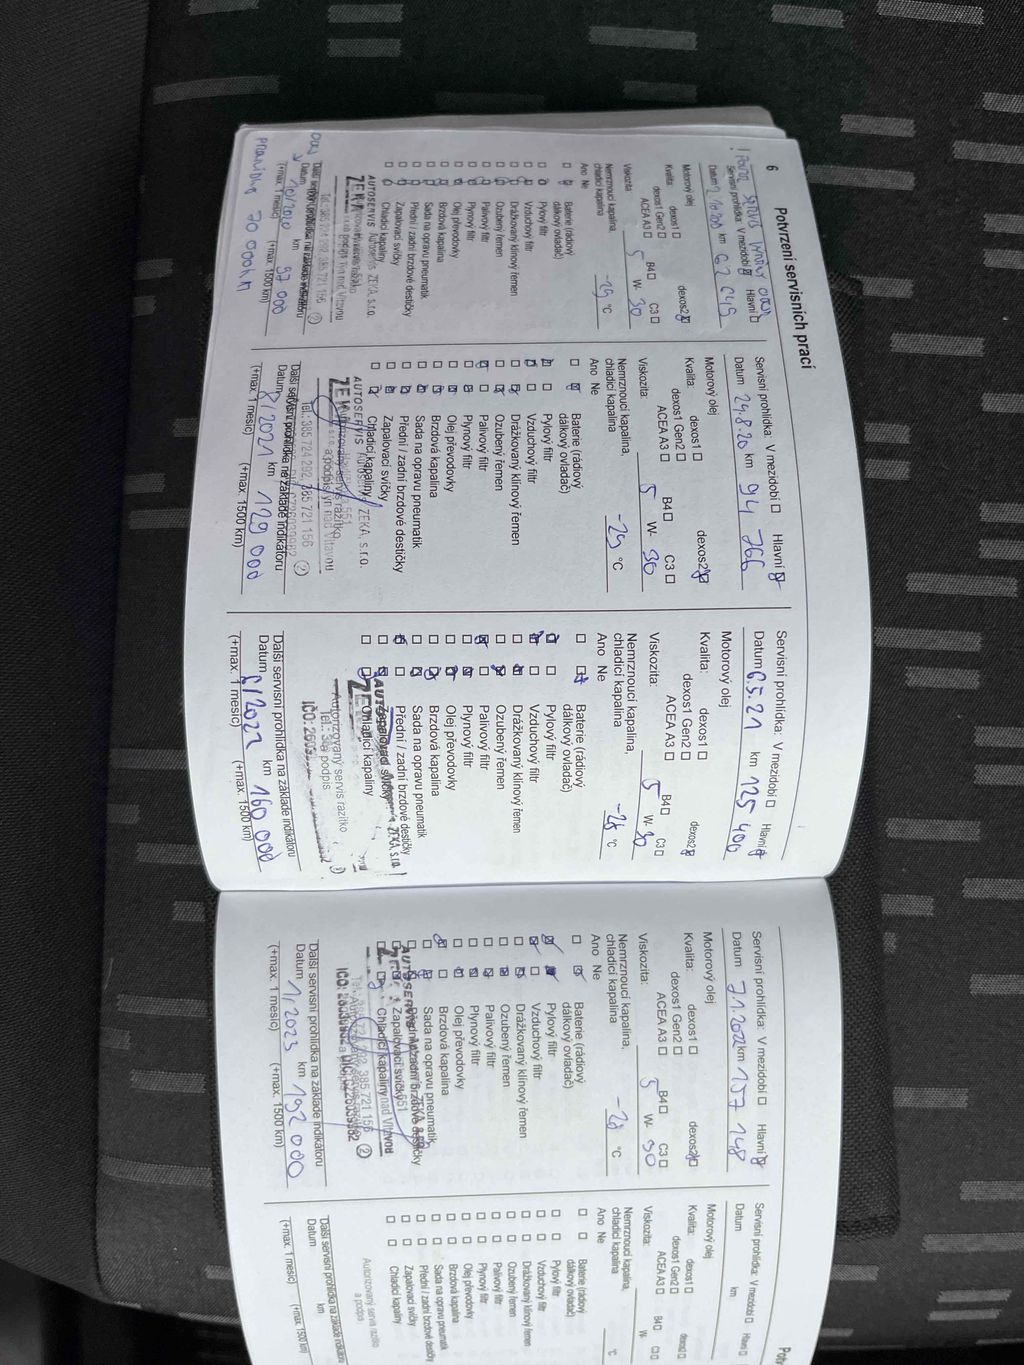 6
Potvrzení servisních prací
Servisní prohlídka: V mezidobí Hlavní
Datum km 62 645
Motorový olej
Kvalita: dexos1 dexos2
dexos1 Gen2 B4 C3
ACEA A3
Viskozita 5 W- 30
Nemrznoucí kapalina,
chladicí kapalina -29 °C
Ano Ne
Baterie (rádiový
dálkový ovladač)
Pylový filtr
Vzduchový filtr
Drážkovaný klínový řemen
Ozubený řemen
Palivový filtr
Plynový filtr
Olej převodovky
Brzdová kapalina
Sada na opravu pneumatik
Přední / zadní brzdové destičky
Zapalovací svíčky
Chladicí kapaliny
AUTOSERVIS ZEKA, s.r.o.
Další servisní prohlídka na základě indikátoru
Datum 10/2020 km 97 000
(+max. 1 měsíc) (+max. 1500 km)
Servisní prohlídka: V mezidobí Hlavní
Datum 24.8.20 km 94 766
Motorový olej
Kvalita: dexos1 dexos2
dexos1 Gen2
ACEA A3 B4 C3
Viskozita: 5 W- 30
Nemrznoucí kapalina,
chladicí kapalina -29 °C
Ano Ne
Baterie (rádiový
dálkový ovladač)
Pylový filtr
Vzduchový filtr
Drážkovaný klínový řemen
Ozubený řemen
Palivový filtr
Plynový filtr
Olej převodovky
Brzdová kapalina
Sada na opravu pneumatik
Přední / zadní brzdové destičky
Zapalovací svíčky
Chladicí kapaliny
AUTOSERVIS ZEKA, s.r.o.
Tel.: 385 724 292, 385 721 156
Další servisní prohlídka na základě indikátoru
Datum 8/2021 km 129 000
(+max. 1 měsíc) (+max. 1500 km)
Servisní prohlídka: V mezidobí Hlavní
Datum 6.5.21 km 125 400
Motorový olej
Kvalita: dexos1 dexos2
dexos1 Gen2
ACEA A3 B4 C3
Viskozita: 5 W- 30
Nemrznoucí kapalina,
chladicí kapalina -28 °C
Ano Ne
Baterie (rádiový
dálkový ovladač)
Pylový filtr
Vzduchový filtr
Drážkovaný klínový řemen
Ozubený řemen
Palivový filtr
Plynový filtr
Olej převodovky
Brzdová kapalina
Sada na opravu pneumatik
Přední / zadní brzdové destičky
Zapalovací svíčky
Chladicí kapaliny
Autorizovaný servis razítko
a podpis
Další servisní prohlídka na základě indikátoru
Datum km 160 000
(+max. 1 měsíc) (+max. 1500 km)
Servisní prohlídka: V mezidobí Hlavní
Datum 7.1.2022 km 157 248
Motorový olej
Kvalita: dexos1 dexos2
dexos1 Gen2
ACEA A3 B4 C3
Viskozita: 5 W- 30
Nemrznoucí kapalina,
chladicí kapalina -28 °C
Ano Ne
Baterie (rádiový
dálkový ovladač)
Pylový filtr
Vzduchový filtr
Drážkovaný klínový řemen
Ozubený řemen
Palivový filtr
Plynový filtr
Olej převodovky
Brzdová kapalina
Sada na opravu pneumatik
Přední / zadní brzdové destičky
Zapalovací svíčky
Chladicí kapaliny
Další servisní prohlídka na základě indikátoru
Datum 1/2023 km 192 000
(+max. 1 měsíc) (+max. 1500 km)
Servisní prohlídka: V mezidobí Hlavní
Datum km
Motorový olej
Kvalita: dexos1 dexos2
dexos1 Gen2
ACEA A3 B4 C3
Viskozita: W-
Nemrznoucí kapalina,
chladicí kapalina °C
Ano Ne
Baterie (rádiový
dálkový ovladač)
Pylový filtr
Vzduchový filtr
Drážkovaný klínový řemen
Ozubený řemen
Palivový filtr
Plynový filtr
Olej převodovky
Brzdová kapalina
Sada na opravu pneumatik
Přední / zadní brzdové destičky
Zapalovací svíčky
Chladicí kapaliny
Autorizovaný servis razítko
Další servisní prohlídka na základě indikátoru
Datum km
(+max. 1 měsíc) (+max. 1500 km)